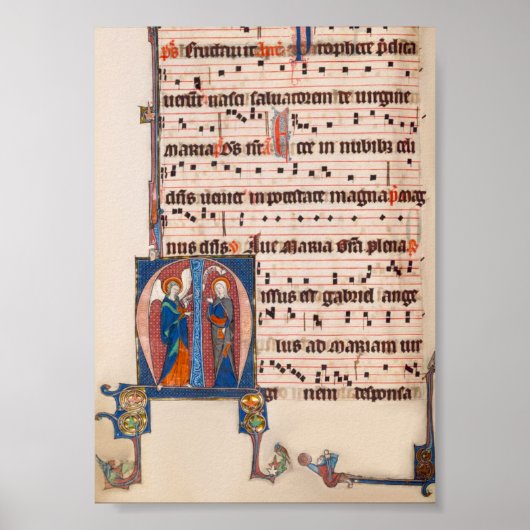 p̄s Erudauite hāc Prophete p̄dica
uerūt nasci saluatorem de uirgine
maria p̄s Ecce in nubibȝ celi
dn̄s ueniet in potestate magna p̄ mag
nus dn̄s Aue maria grā plena R
issus est gabriel ange
lus ad mariam uir
gi nem desponsa